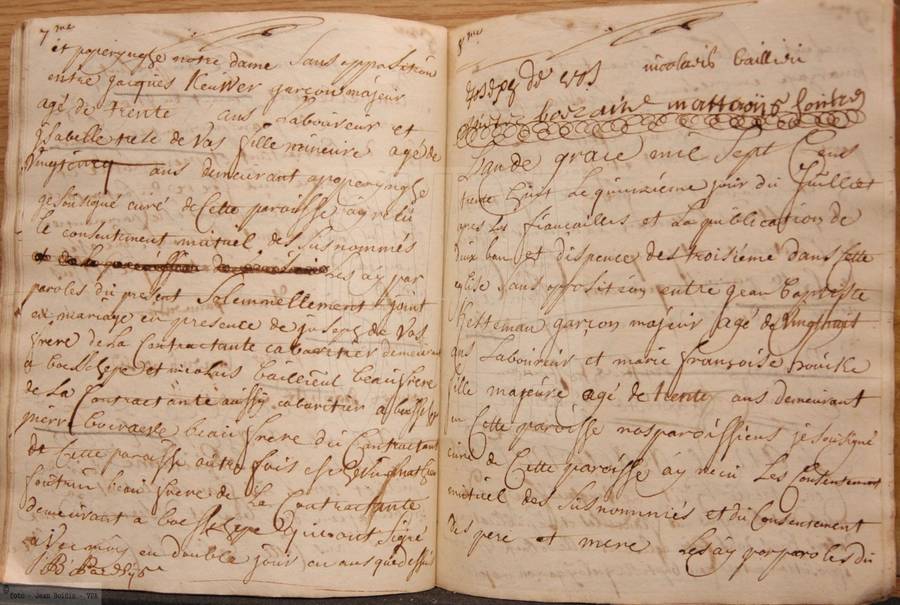 7 me
et poperynghe notre dame sans opposition
entre jacques Keuwer garçon majeur
agé de trente ans Laboureur et
de Vos fille mineure agé de
ans demeurant a poperynghe
je sousigné curé de Cette paroisse ay recu
le consentement mutuel des susnommés
les ay par
paroles du present Solemnellement joint
en mariage en presence de joseph de Vos
frere de la Contractante cabaretier demeurant
a boesepe et nicolais bailleul beaufrere
de La Contractante aussy cabaretier a
pierre bovaert beau frere du Contractant
de Cette paroisse autre fois et
beau frere de La Contractante
demeurant a qui ont signé
avec moy en double jour en
8 me
joseph de vos nicolais baillieu
L'an de grace mil Sept Cens
trente huit Le quinzieme jour du juilliet
apres Les fiancailles et La publication de
deux ban et dispence des troisieme dans Cette
eglise sans opposition entre jean baptiste
Ketteman garçon majeur agé de vingthuit
ans Laboureur et marie francoise houcke
fille majeure agé de trente ans demeurant
en Cette paroisse nos paroissiens je sousigné
curé de Cette paroisse ay recu Les Consentement
mutuel des susnommés et du Consentement
des pere et mere Les ay par paroles du
foto - Jean Boidin - VVA